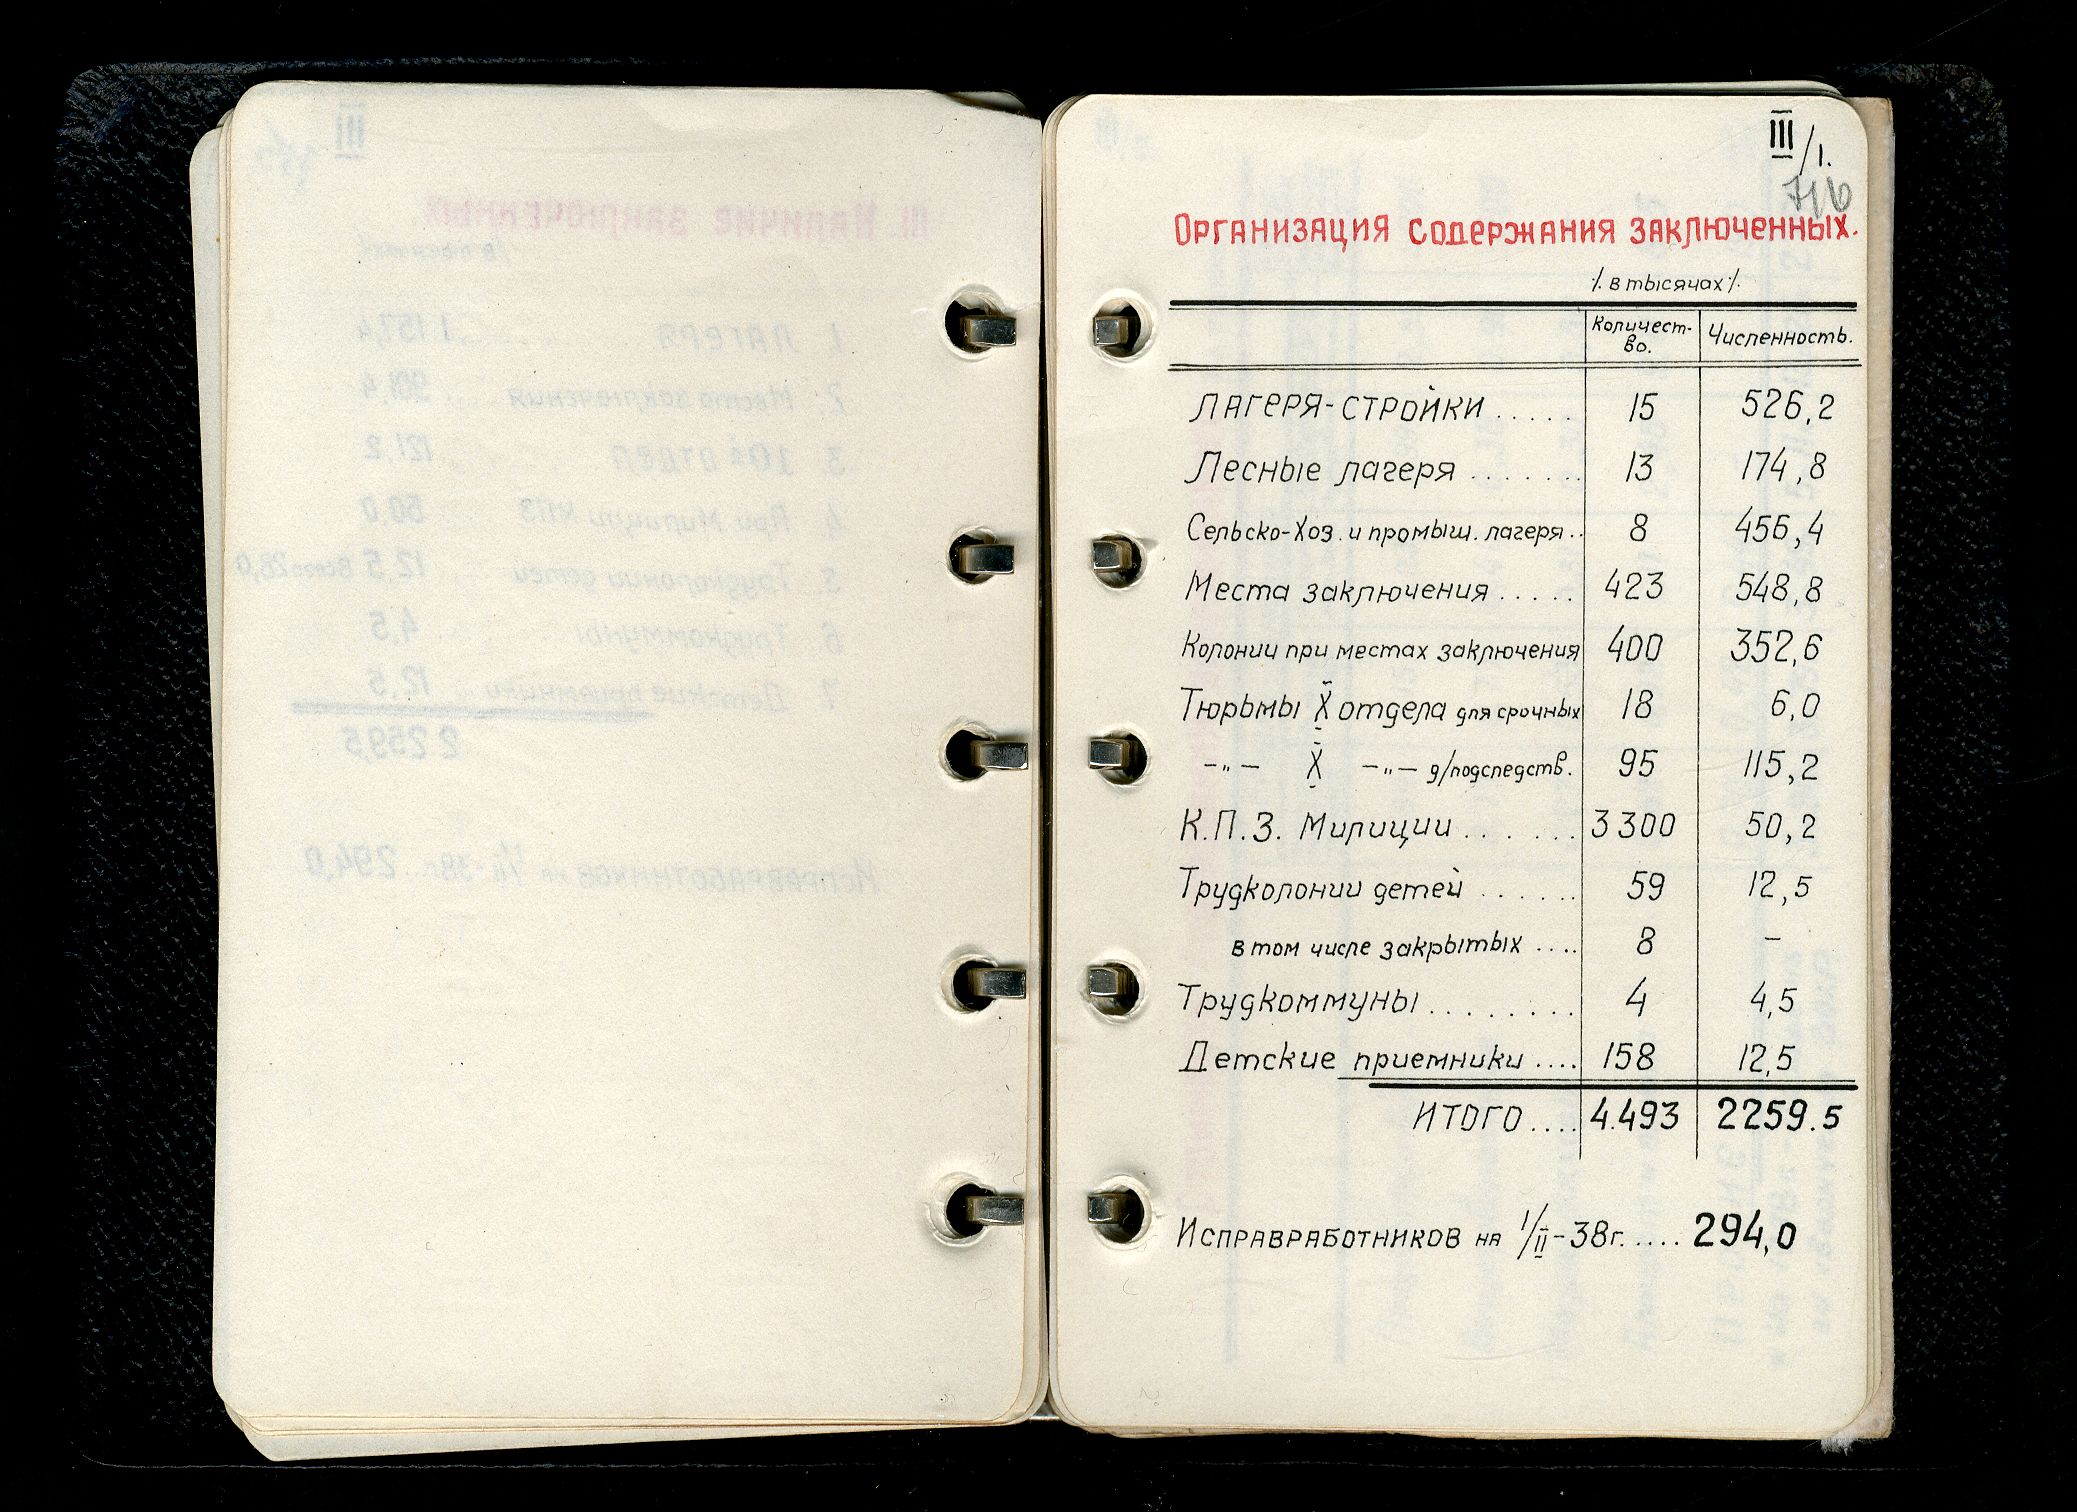 III/1.
716
Организация содержания заключенных.
/. в тысячах /.
Количест- Численность.
во.
Лагеря-стройки..... 15 526,2
Лесные лагеря....... 13 174,8
Сельско-Хоз. и промыш. лагеря.. 8 456,4
Места заключения..... 423 548,8
Колонии при местах заключения 400 352,6
Тюрьмы X отдела для срочных 18 6,0
—„— X —„— д/подследств. 95 115,2
К.П.З. Милиции...... 3300 50,2
Трудколонии детей...... 59 12,5
в том числе закрытых.... 8 –
Трудкоммуны........ 4 4,5
Детские приемники.... 158 12,5
Итого.... 4.493 2259.5
Исправработников на 1/II-38г..... 294,0